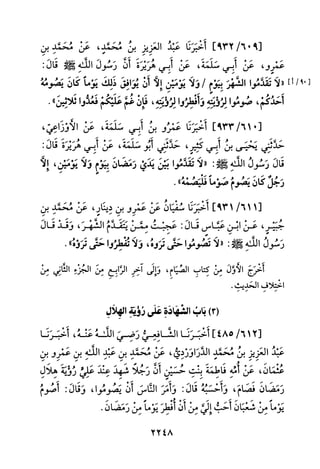 [٩٣٢/٦٠٩] أَخْبَرَنَا عَبْدُ العَزِيزِ بنُ مُحَمَّدٍ، عَنْ مُحَمَّدِ بنِ
عَمْرٍو، عَنْ أَبِي سَلَمَةَ، عَنْ أَبِي هُرَيْرَةَ أَنَّ رَسُولَ اللهِ ﷺ قَالَ:
«لَا تَقَدَّمُوا الشَّهْرَ بِيَوْمٍ / وَلَا يَوْمَيْنِ إِلَّا أَنْ يُوَافِقَ ذَلِكَ يَوْماً كَانَ يَصُومُهُ [١/٩٠]
أَحَدُكُمْ، صُومُوا لِرُؤْيَتِهِ وَأَفْطِرُوا لِرُؤْيَتِهِ، فَإِنْ غُمَّ عَلَيْكُمْ فَعُدُّوا ثَلَاثِينَ».
[٩٣٣/٦١٠] أَخْبَرَنَا عَمْرُو بنُ أَبِي سَلَمَةَ، عَنِ الأَوْزَاعِيِّ،
حَدَّثَنِي يَحْيَى بنُ أَبِي كَثِيرٍ، حَدَّثَنِي أَبُو سَلَمَةَ، عَنْ أَبِي هُرَيْرَةَ قَالَ:
قَالَ رَسُولُ اللهِ ﷺ: «لَا تَقَدَّمُوا بَيْنَ يَدَيْ رَمَضَانَ بِيَوْمٍ وَلَا يَوْمَيْنِ، إِلَّا
رَجُلٌ كَانَ يَصُومُ صَوْماً فَلْيَصُمْهُ».
[٩٣١/٦١١] أَخْبَرَنَا سُفْيَانُ عَنْ عَمْرِو بنِ دِينَارٍ، عَنْ مُحَمَّدِ بنِ
جُبَيْرٍ، عَنِ ابْنِ عَبَّاسٍ قَالَ: عَجِبْتُ مِمَّنْ يَتَقَدَّمُ الشَّهْرَ، وَقَدْ قَالَ
رَسُولُ اللهِ ﷺ: «لَا تَصُومُوا حَتَّى تَرَوْهُ، وَلَا تُفْطِرُوا حَتَّى تَرَوْهُ».
أَخْرَجَ الأَوَّلَ مِنْ كِتَابِ الصِّيَامِ، وَإِلَى آخِرِ الرَّابِعِ مِنَ الجُزْءِ الثَّانِي مِنْ
اخْتِلَافِ الحَدِيثِ.
(٣) بَابُ الشَّهَادَةِ عَلَى رُؤْيَةِ الهِلَالِ
[٤٨٥/٦١٢] أَخْبَرَنَا الشَّافِعِيُّ رَضِيَ اللهُ عَنْهُ، أَخْبَرَنَا
عَبْدُ العَزِيزِ بنُ مُحَمَّدٍ الدَّرَاوَرْدِيُّ، عَنْ مُحَمَّدِ بنِ عَبْدِ اللهِ بنِ عَمْرِو بنِ
عُثْمَانَ، عَنْ أُمِّهِ فَاطِمَةَ بِنْتِ حُسَيْنٍ أَنَّ رَجُلاً شَهِدَ عِنْدَ عَلِيٍّ رُؤْيَةَ هِلَالِ
رَمَضَانَ فَصَامَ، وَأَحْسَبُهُ قَالَ: وَأَمَرَ النَّاسَ أَنْ يَصُومُوا، وَقَالَ: أَصُومُ
يَوْماً مِنْ شَعْبَانَ أَحَبُّ إِلَيَّ مِنْ أَنْ أُفْطِرَ يَوْماً مِنْ رَمَضَانَ.
٢٢٤٨